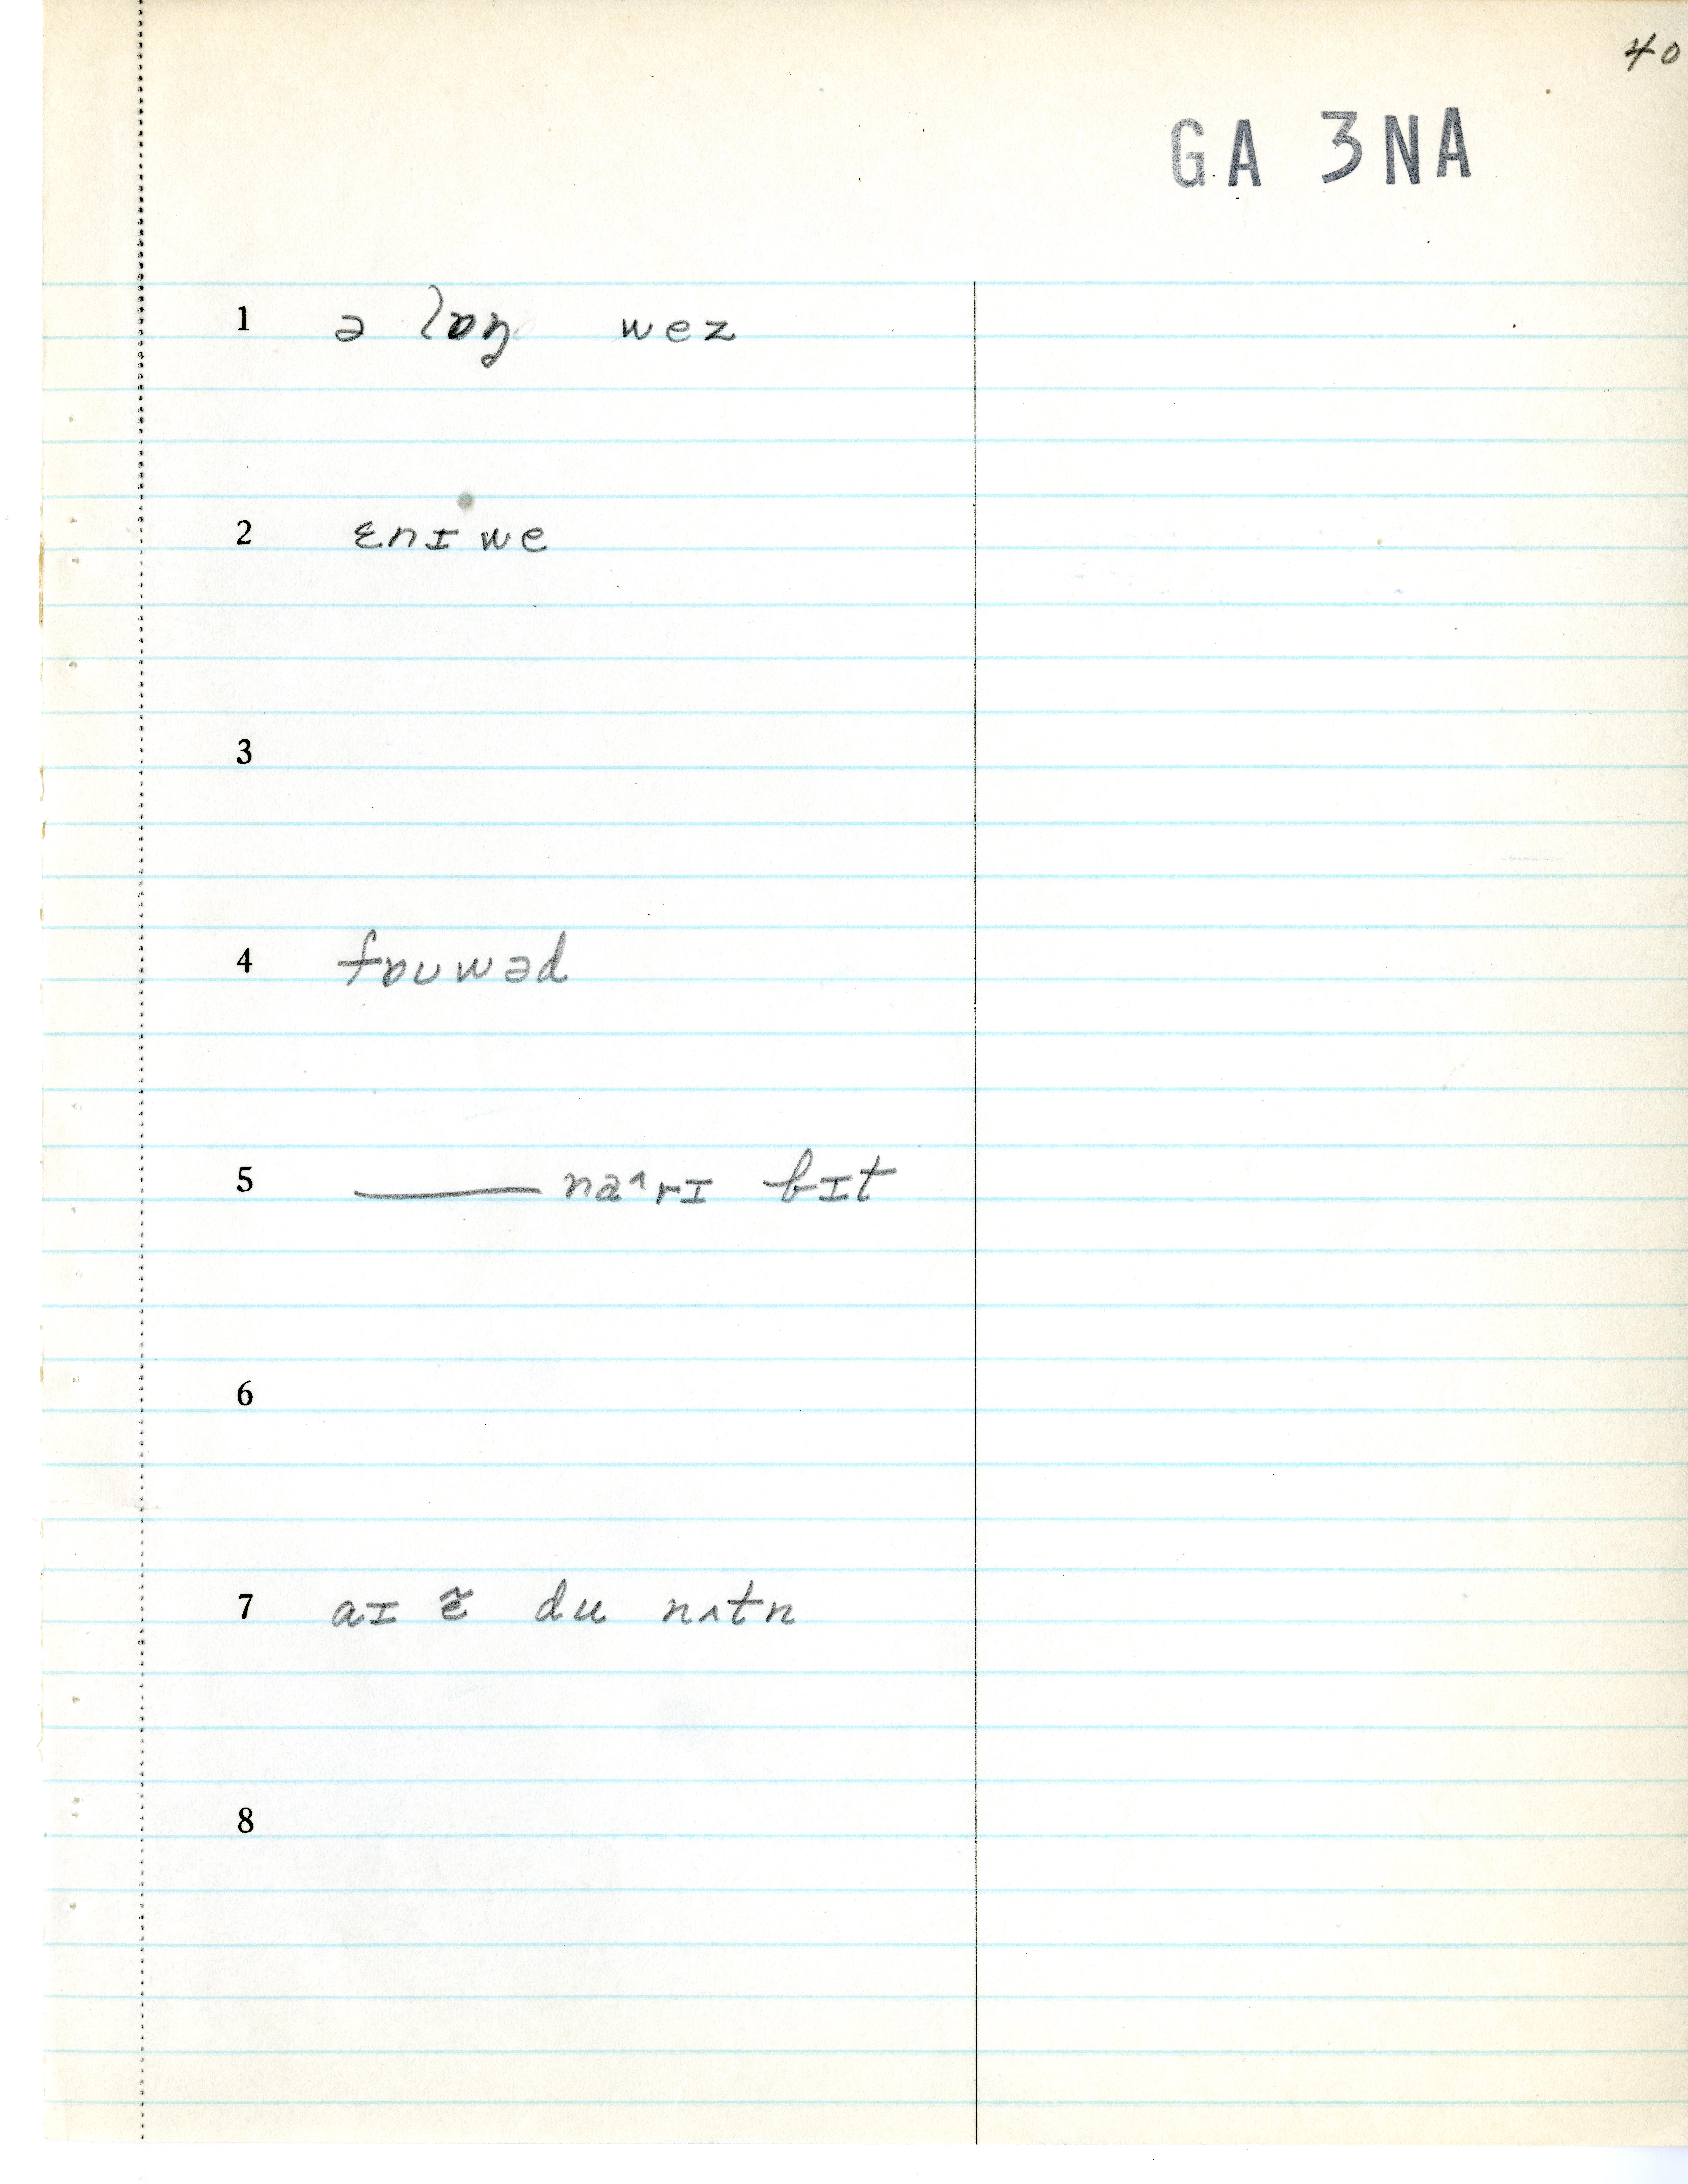 40
GA 3NA
1 ə lɒŋ wez
2 ɛnɪ we
3
4 fɒuwəd
5 ——— naᶺrɪ bɪt
6
7 aɪ ɛ̃ du nʌtn
8